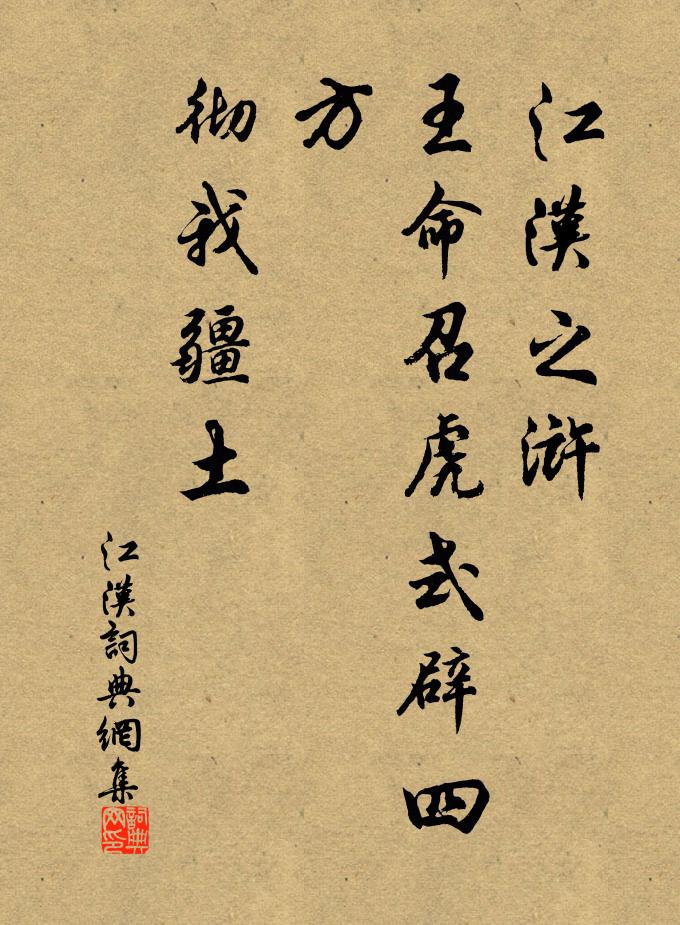 江漢之滸
王命召虎式辟四
方
徹我疆土
江漢詞典網集
詞典
网印